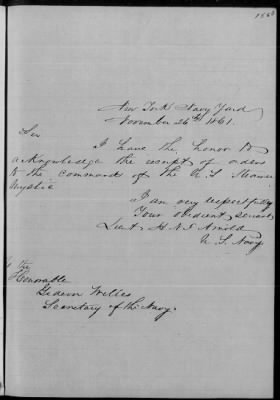 New York Navy Yard
November 26th 1861.
Sir
I have the honor to
acknowledge the receipt of orders
to the command of the U.S. Steamer
Mystic
I am very respectfully
Your obedient servant
Lieut H. N. T. Arnold
U. S. Navy
To the
Honorable
Gideon Welles
Secretary of the Navy